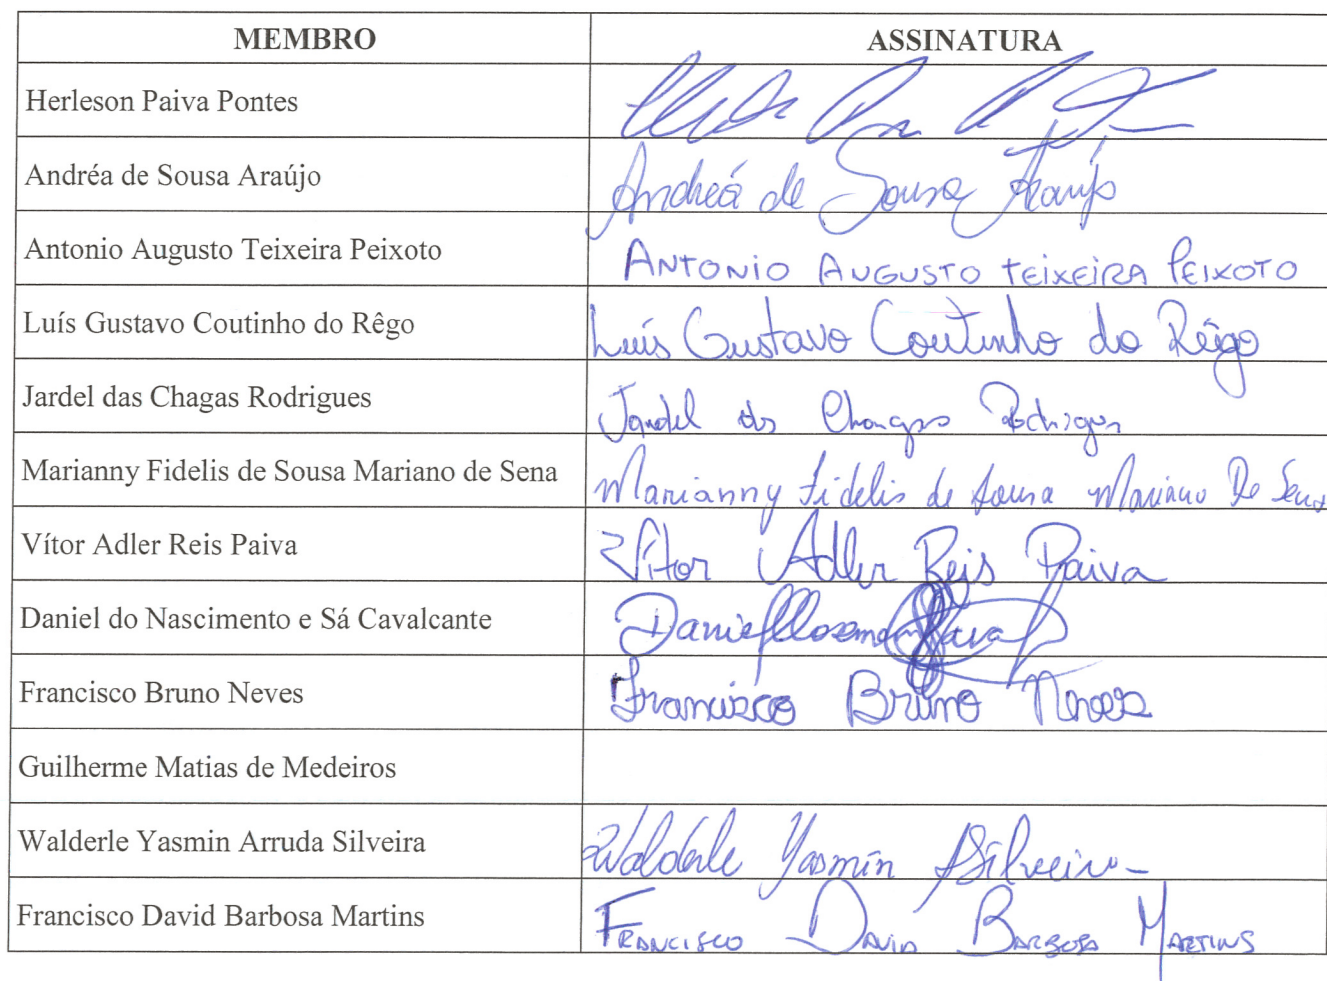 MEMBRO ASSINATURA
Herleson Paiva Pontes
Andréa de Sousa Araújo Andreá de Sousa Araújo
Antonio Augusto Teixeira Peixoto ANTONIO AUGUSTO TEIXEIRA PEIXOTO
Luís Gustavo Coutinho do Rêgo Luís Gustavo Coutinho do Rêgo
Jardel das Chagas Rodrigues Jardel das Chagas Rodrigues
Marianny Fidelis de Sousa Mariano de Sena Marianny Fidelis de Sousa Mariano De Sena
Vítor Adler Reis Paiva Vítor Adler Reis Paiva
Daniel do Nascimento e Sá Cavalcante Daniel
Francisco Bruno Neves Francisco Bruno Neves
Guilherme Matias de Medeiros
Walderle Yasmin Arruda Silveira Walderle Yasmin ASilveira
Francisco David Barbosa Martins FRANCISCO DAVID BARBOSA MARTINS